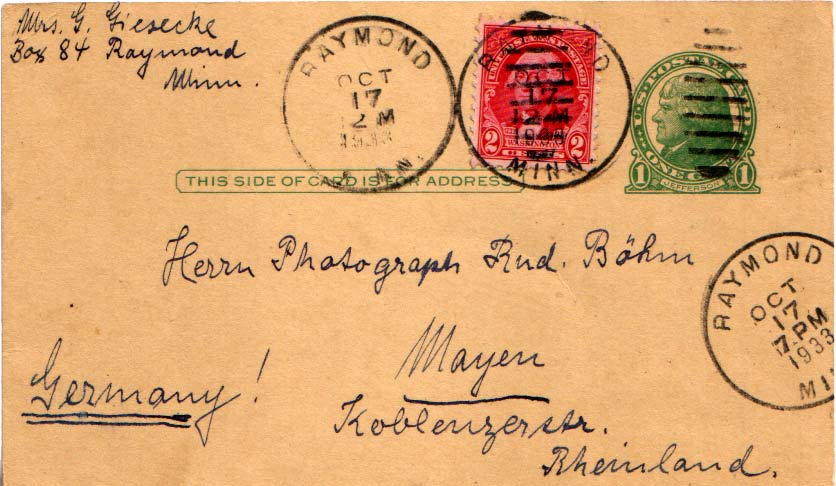 Mrs. G. Giesecke
Box 84 Raymond
Minn.
RAYMOND
OCT
17
2 M
MINN.
UNITED STATES POSTAGE
2 2
WASHINGTON
OCT
17
MINN.
U.S. POSTAL CARD
1 ONE CENT 1
JEFFERSON
THIS SIDE OF CARD IS FOR ADDRESS
Herrn Photograph Rud. Böhm
RAYMOND
OCT
17
7 PM
1933
MIN
Mayen
Germany!
Koblenzerstr.
Rheinland.